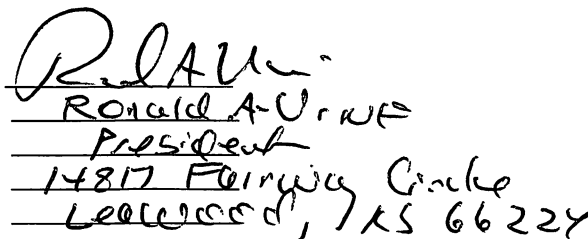 Ronald A. Urine
President
14817 Fairway Circle
Leawood, KS 66224